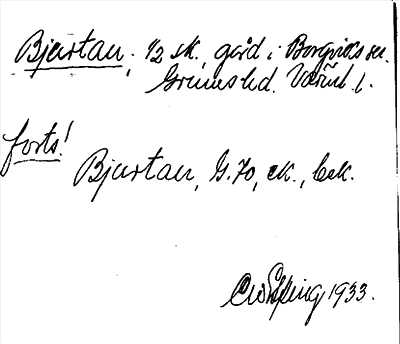 Bjurtan, 1/2 sk. gård i Borgviks sn.
Grums hd. Värml. l.
forts!
Bjurtan, G. 70, ek., bek.
1933.